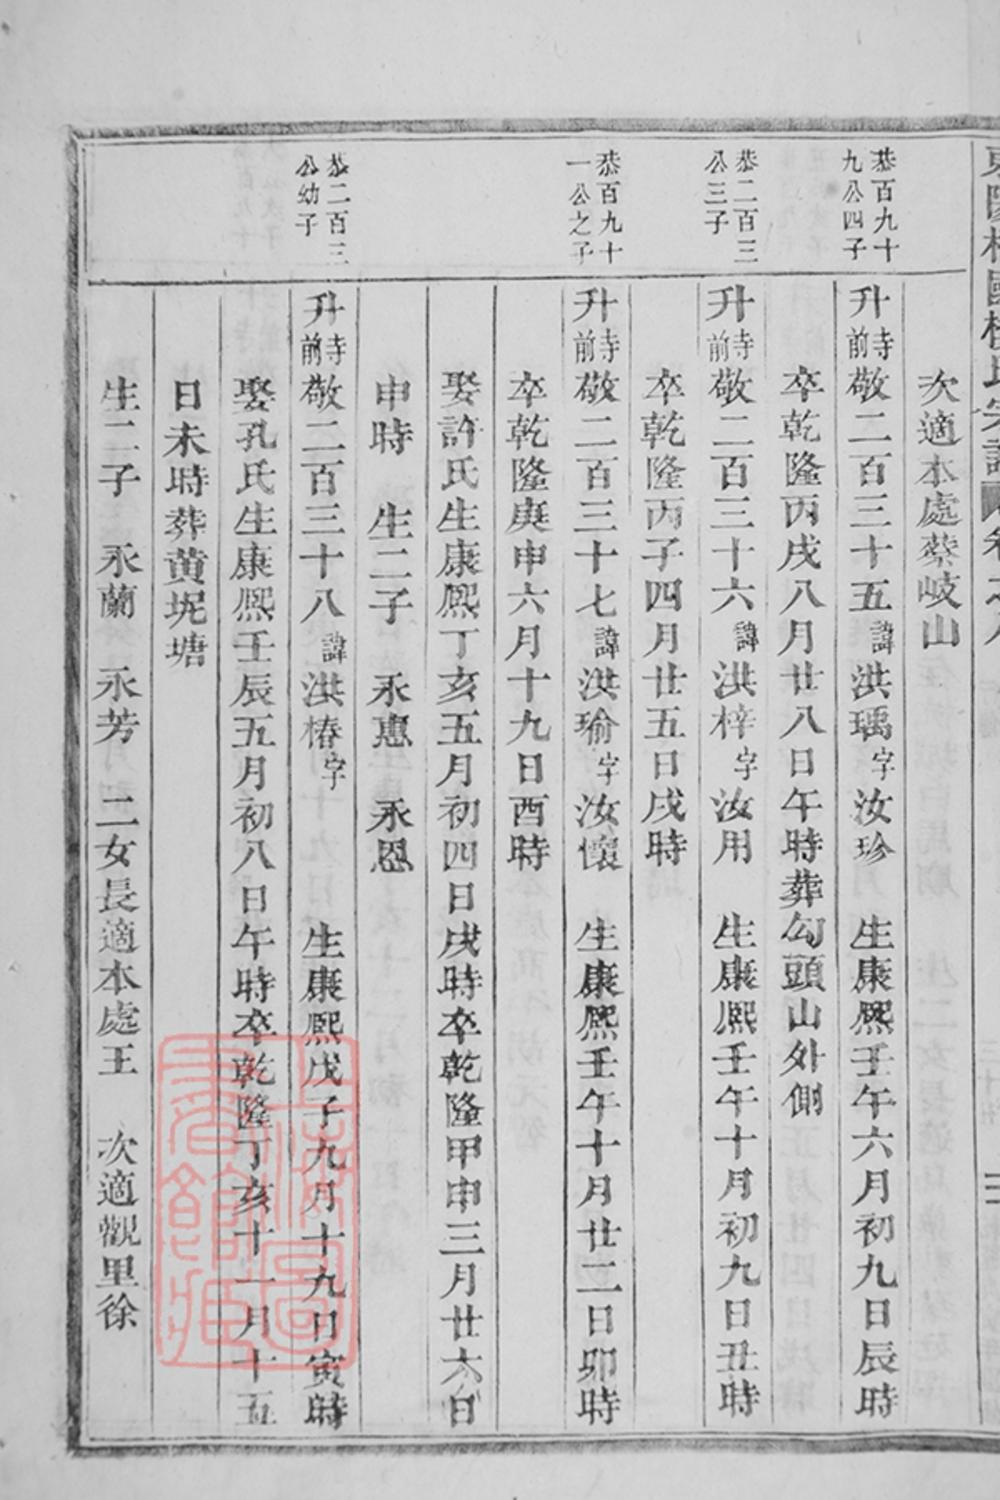 次適本處蔡岐山
恭百九十
九公四子
升寺前敬二百三十五諱洪瑀字汝珍　生康熙壬午六月初九日辰時
卒乾隆丙戌八月廿八日午時葬勾頭山外側
恭二百三
公三子
升寺前敬二百三十六諱洪梓字汝用　生康熙壬午十月初九日丑時
卒乾隆丙子四月廿五日戌時
恭百九十
一公之子
升寺前敬二百三十七諱洪瑜字汝懷　生康熙壬午十月廿二日卯時
卒乾隆庚申六月十九日酉時
娶許氏生康熙丁亥五月初四日戌時卒乾隆甲申三月廿六日
申時　生二子　永惠　永恩
恭二百三
公幼子
升寺前敬二百三十八諱洪椿字　生康熙戊子九月十九日寅時
娶孔氏生康熙壬辰五月初八日午時卒乾隆丁亥十一月十五
日未時葬黄坭塘
生二子　永蘭　永芳　二女長適本處王　次適觀里徐